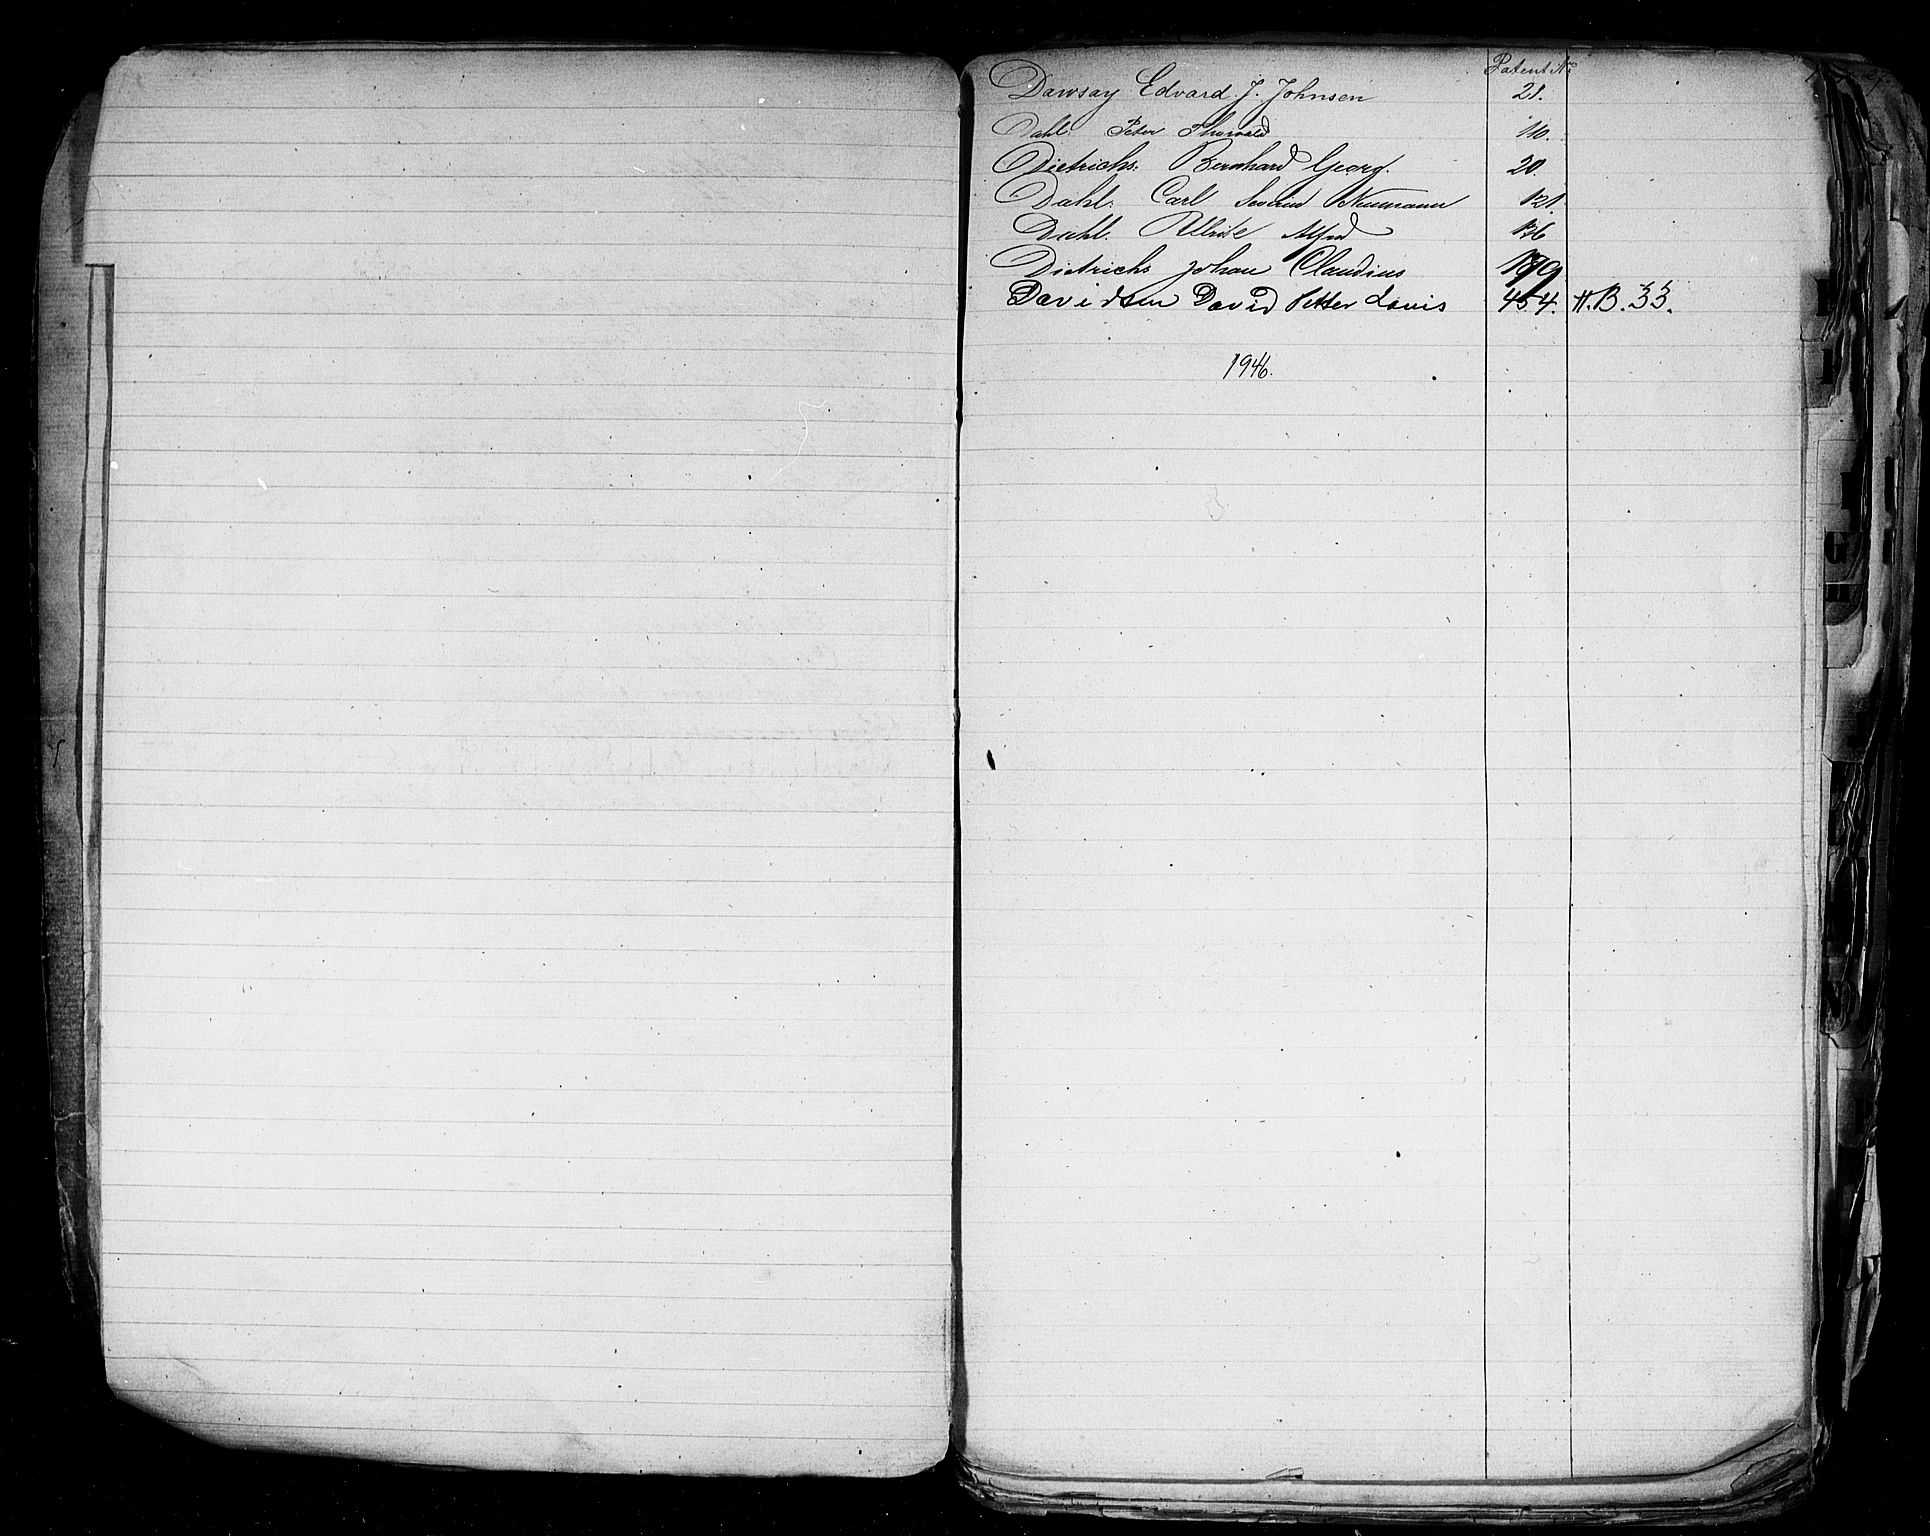 Patent No
Dawsay Edvard. J. Johnsen 21.
Dahl. Peter Thorvald 110.
Dietrichs. Bernhard Georg. 20.
Dahl. Carl Severin Neumann 121.
Dahl. Alfred 176
Dietrichs Johan Claudius 179
Davidsen David Petter Louis 454. H.B. 33.
1946.